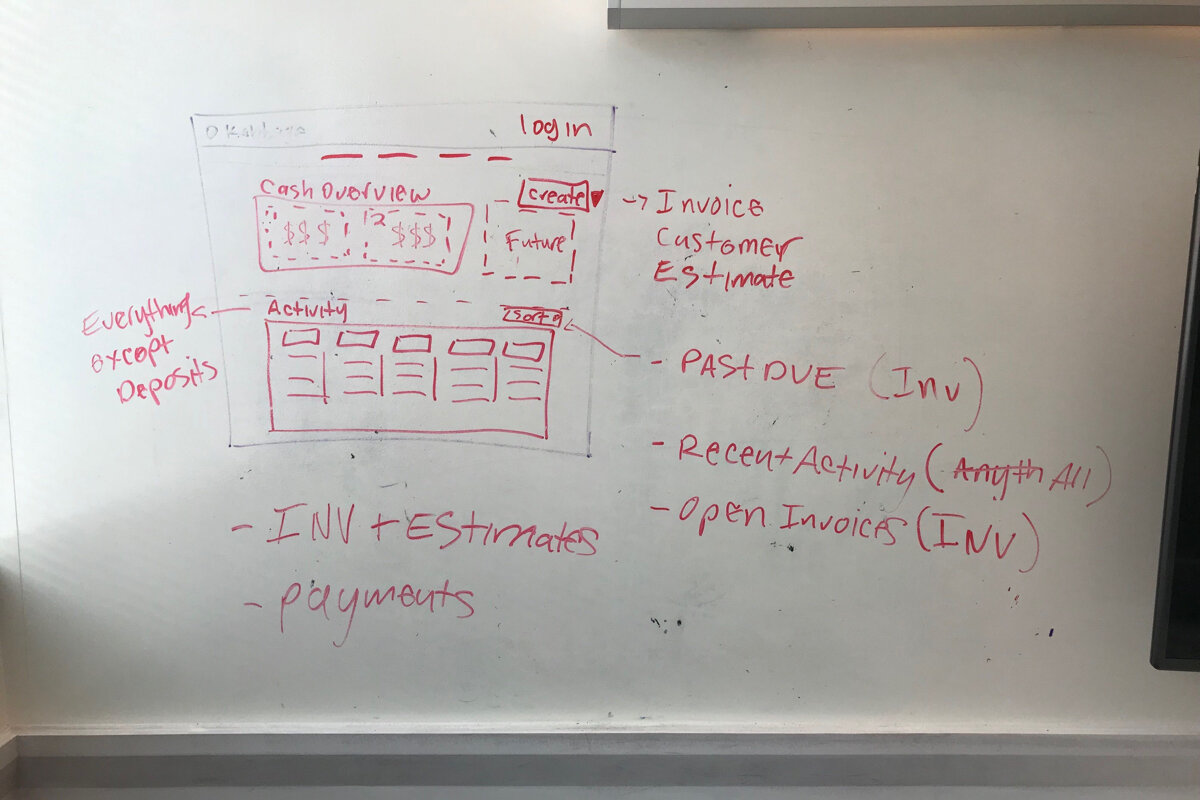 login
Cash Overview
create
$$$
12 $$$
Future
Invoice
Customer
Estimate
Everything
except
Deposits
Activity
Sort
- PAST DUE (Inv)
- Recent Activity (Anyth All)
- Open Invoices (INV)
- INV + Estimates
- payments